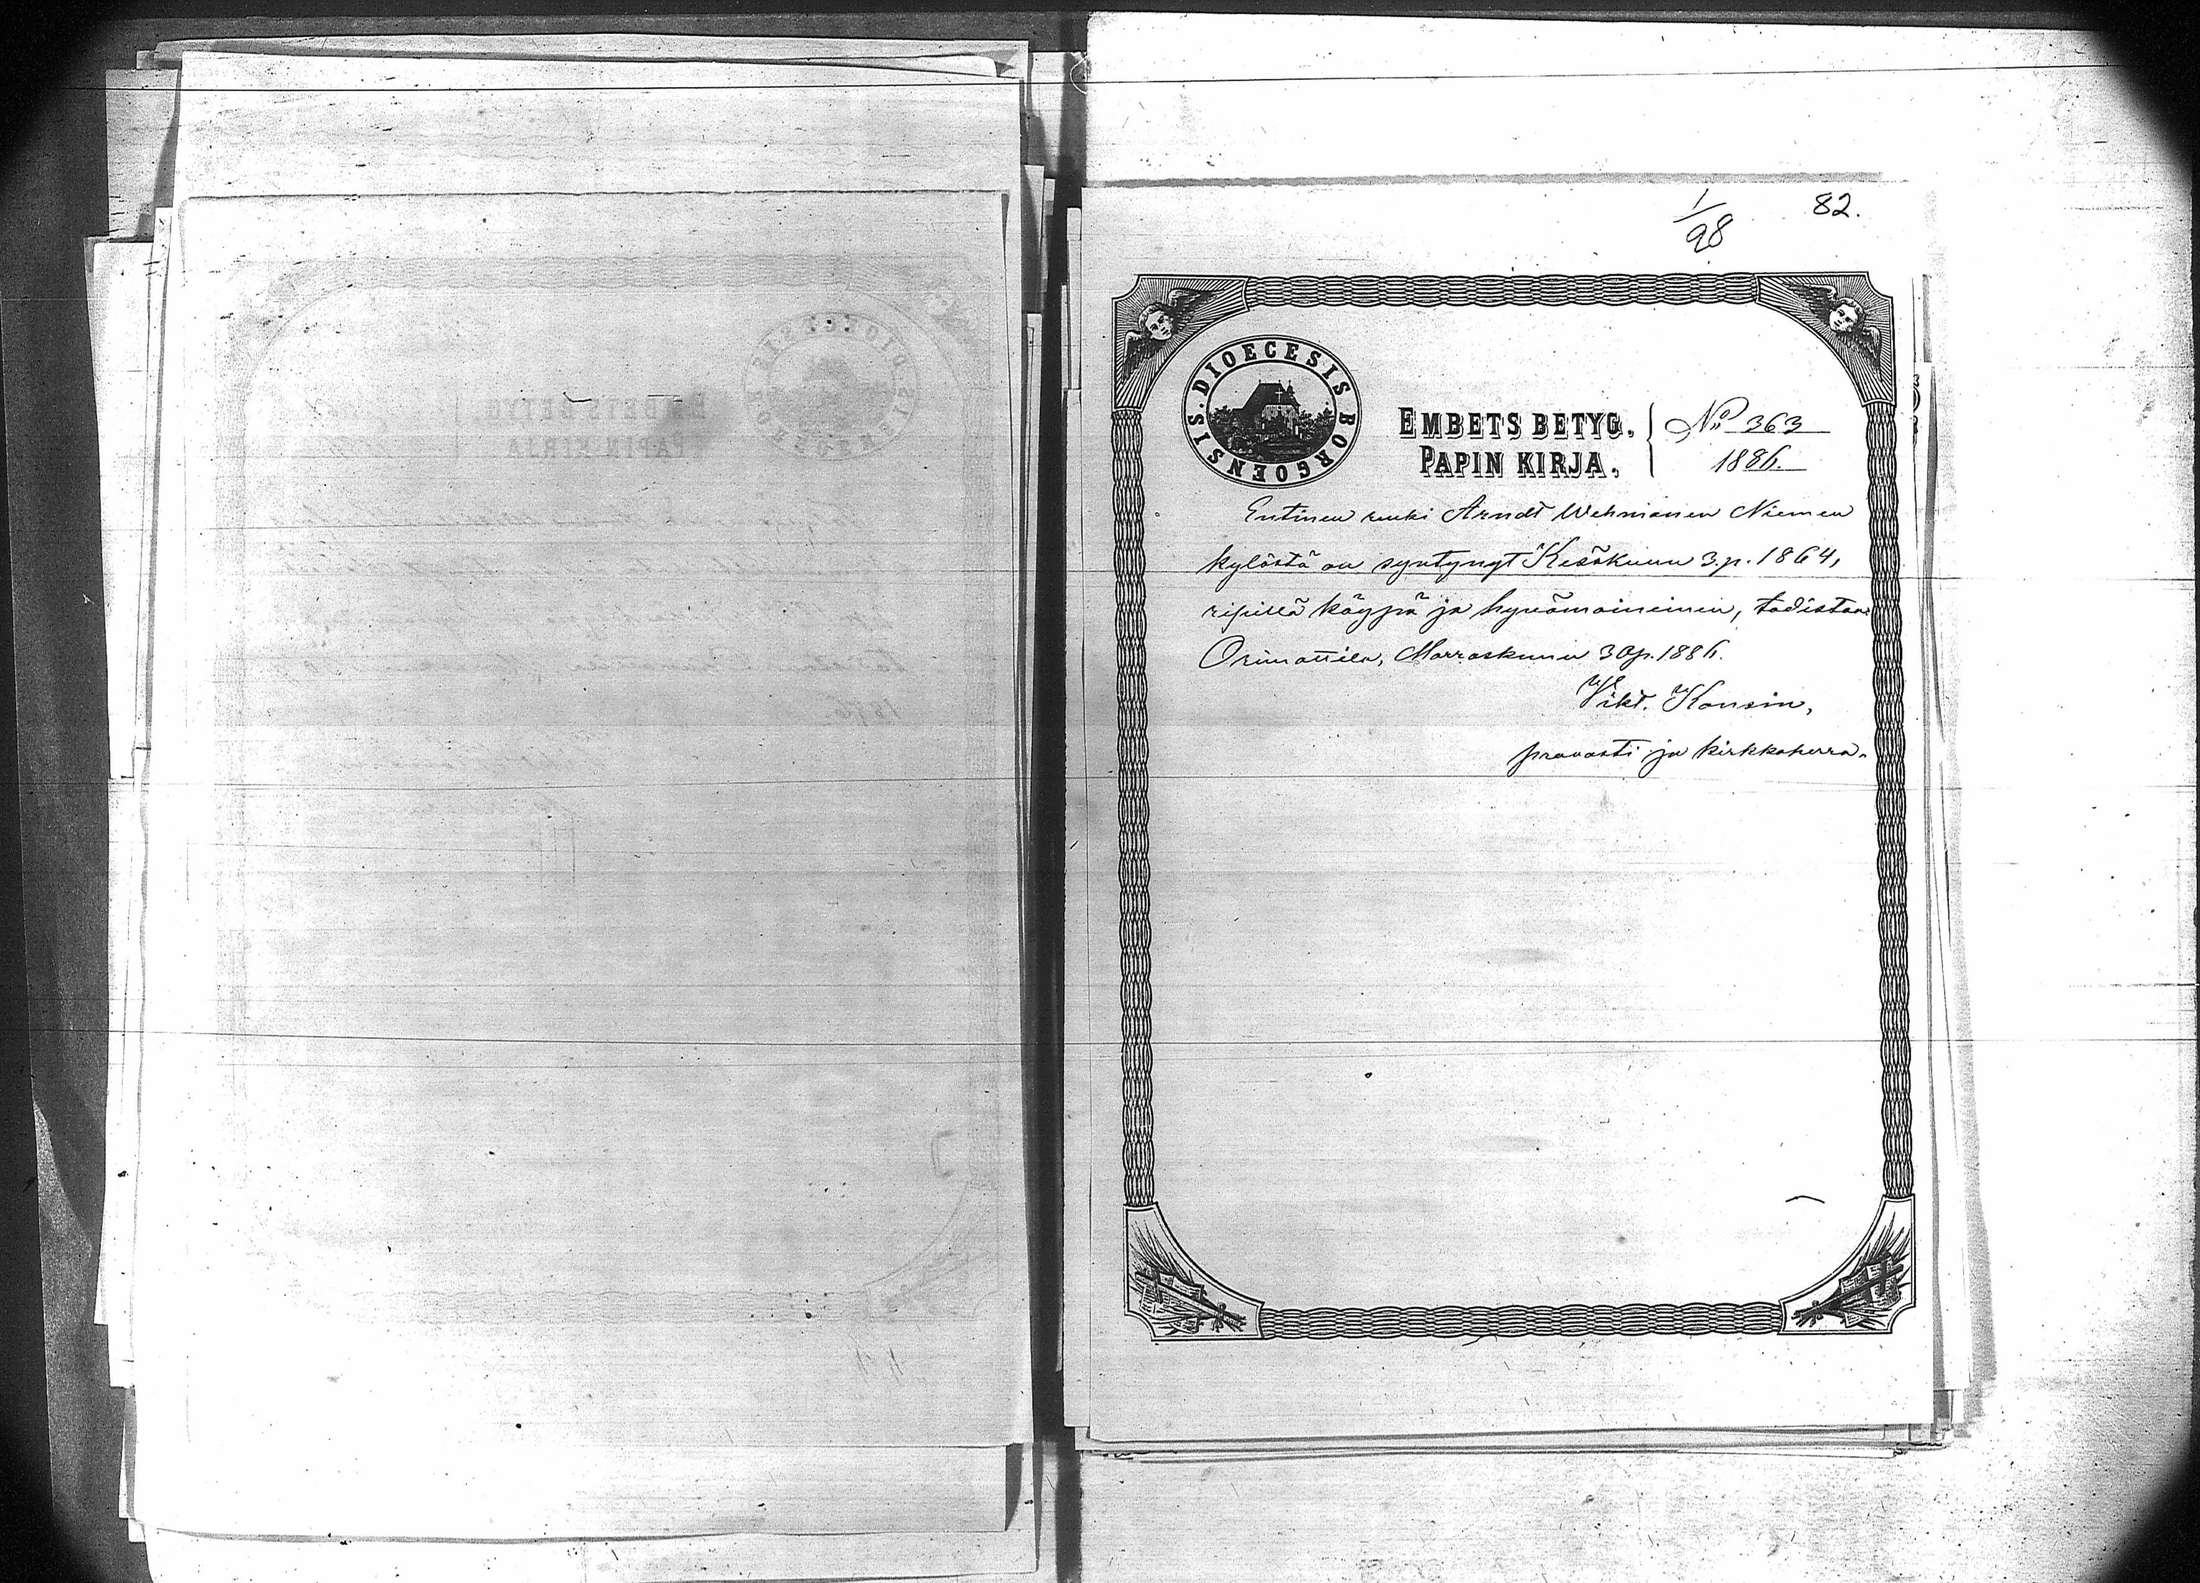 1/98
82.
DIOECESIS BORGOENSIS.
EMBETS BETYG. No 363
PAPIN KIRJA. 1886.
Entinen renki Arndt Wehmanen Niemen
kylästä on syntynyt Kesäkuun 3 p. 1864,
ripillä käypä ja hyvämaineinen, todistaa
Orimattila, Marraskuun 30 p. 1886.
Vikt. Konsin,
provasti ja kirkkoherra.